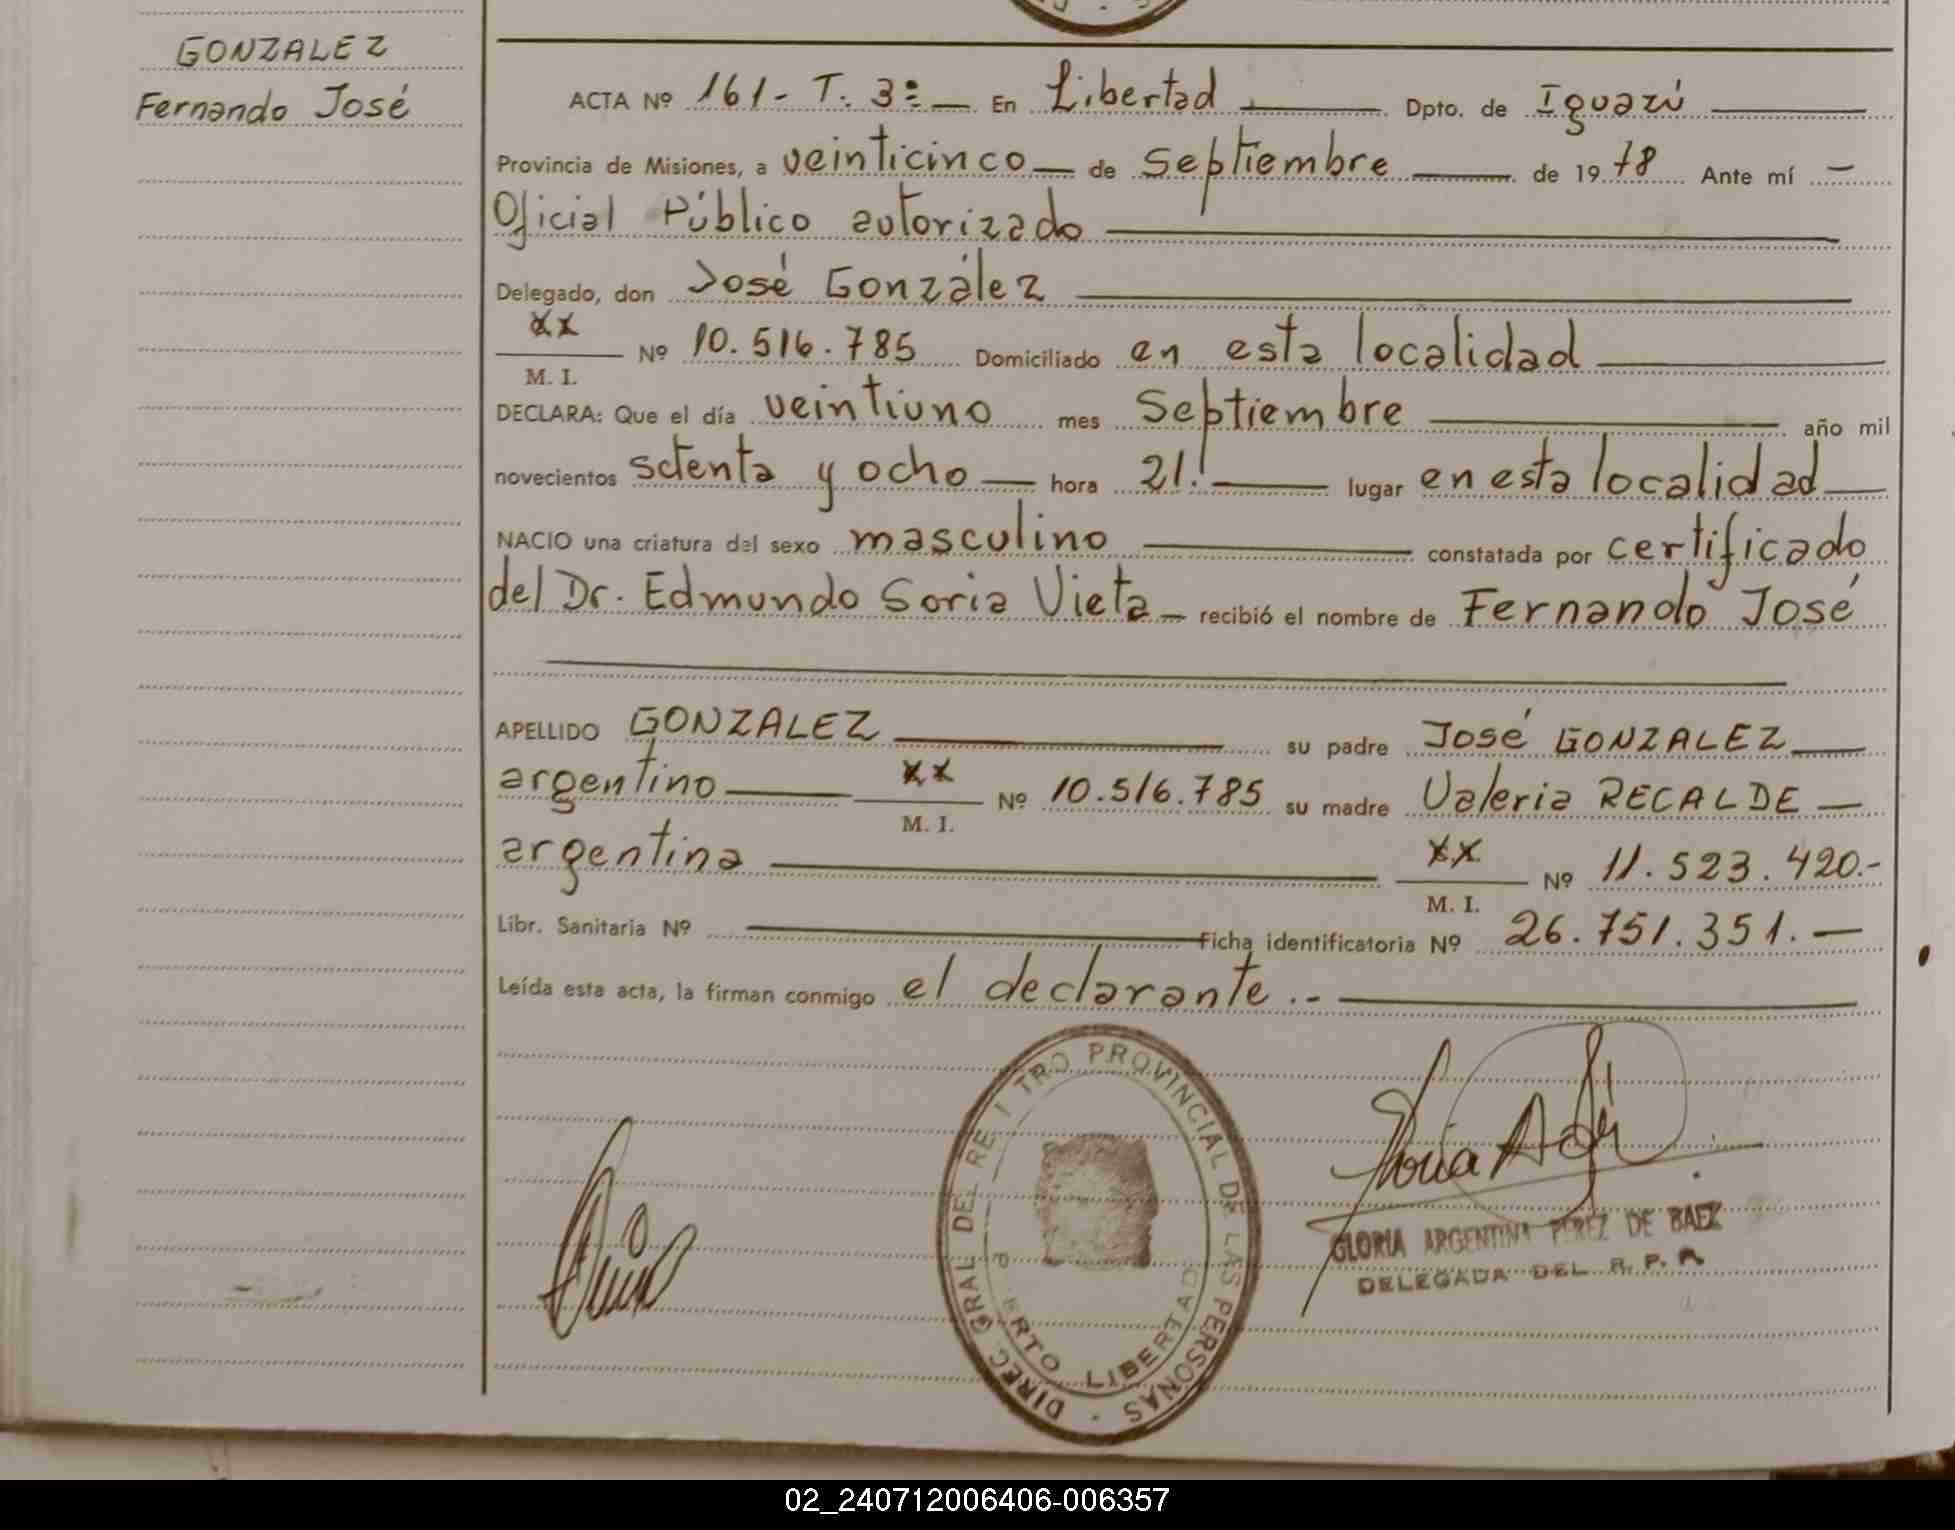 GONZALEZ
Fernando José
ACTA Nº 161- T. 3º En Libertad Dpto. de Iguazú
Provincia de Misiones, a veinticinco de Septiembre de 1978 Ante mí
Oficial Público autorizado
Delegado, don José González
xx
M. I. Nº 10.516.785 Domiciliado en esta localidad
DECLARA: Que el día veintiuno mes Septiembre año mil
novecientos setenta y ocho hora 21. lugar en esta localidad
NACIO una criatura del sexo masculino constatada por certificado
del Dr. Edmundo Soria Vieta recibió el nombre de Fernando José
APELLIDO GONZALEZ su padre José GONZALEZ
argentino xx
M. I. Nº 10.516.785 su madre Valeria RECALDE
argentina xx
M. I. Nº 11.523.420.-
Libr. Sanitaria Nº Ficha identificatoria Nº 26.751.351.
Leída esta acta, la firman conmigo el declarante..-
DIREC GRAL DEL RE I TRO PROVINCIAL DE LAS PERSONAS
P ERTO LIBERTAD
GLORIA ARGENTINA PEREZ DE BAEZ
DELEGADA DEL R. P.
02_240712006406-006357